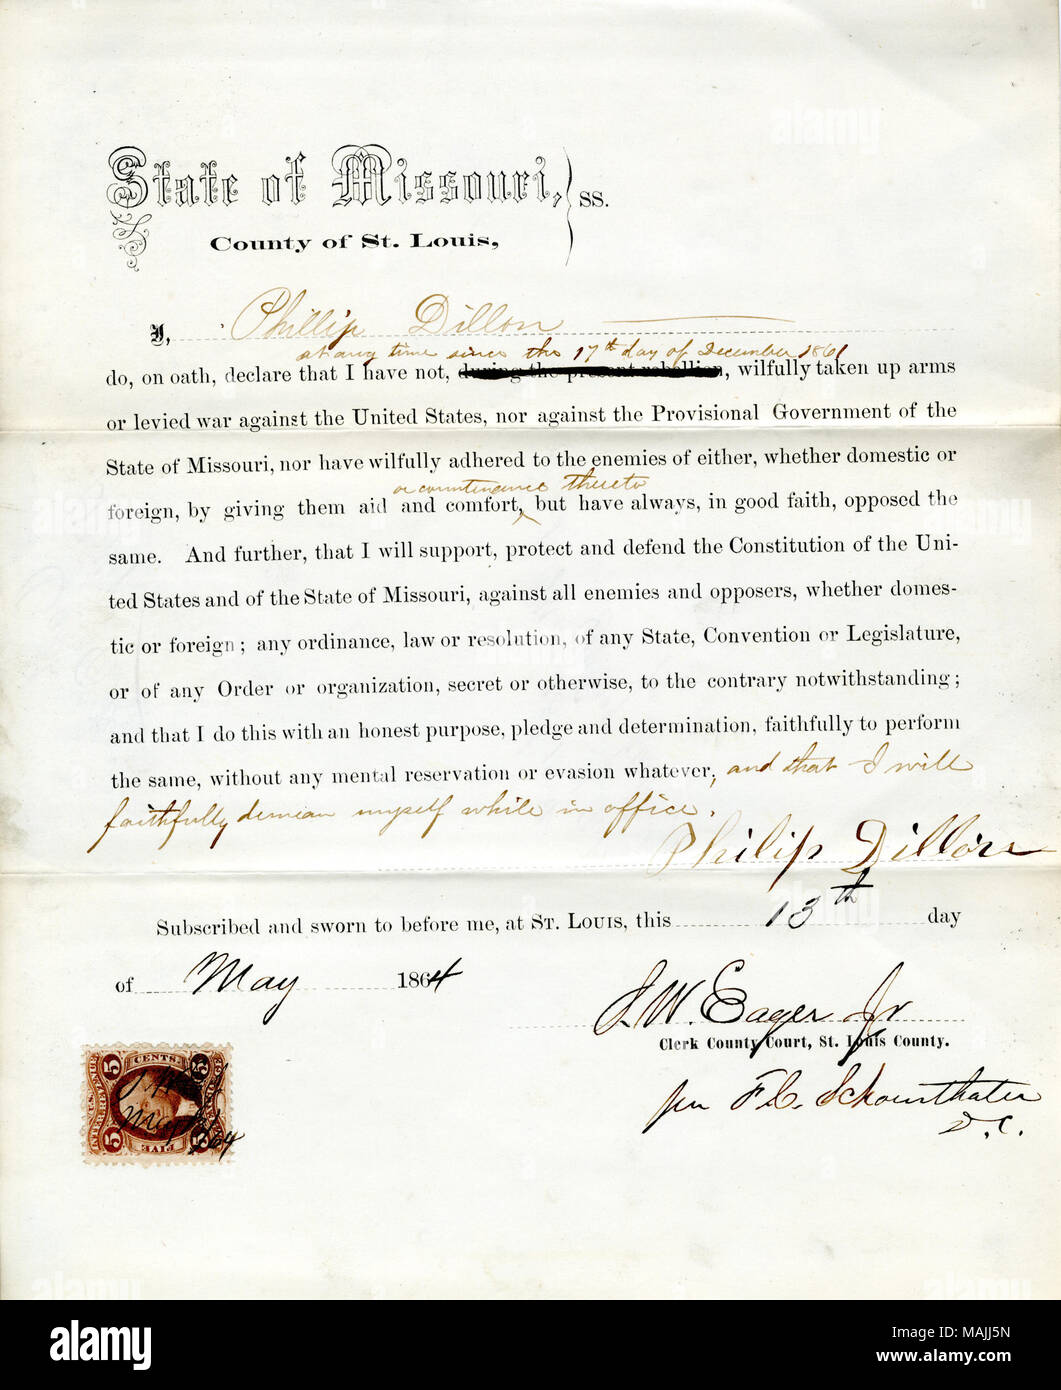 State of Missouri, } ss.
County of St. Louis,
I, Phillip Dillon
at any time since the 17th day of December 1861
do, on oath, declare that I have not, during the present rebellion, wilfully taken up arms
or levied war against the United States, nor against the Provisional Government of the
State of Missouri, nor have wilfully adhered to the enemies of either, whether domestic or
or countenance thereto
foreign, by giving them aid and comfort, but have always, in good faith, opposed the
same. And further, that I will support, protect and defend the Constitution of the Uni-
ted States and of the State of Missouri, against all enemies and opposers, whether domes-
tic or foreign; any ordinance, law or resolution, of any State, Convention or Legislature,
or of any Order or organization, secret or otherwise, to the contrary notwithstanding;
and that I do this with an honest purpose, pledge and determination, faithfully to perform
the same, without any mental reservation or evasion whatever, and that I will
faithfully demean myself while in office.
Philip Dillon
Subscribed and sworn to before me, at St. Louis, this 13th day
of May 1864
Eager Jr
Clerk County Court, St. Louis County.
per F.C. D.C.
5 CENTS. 5
U.S. INTER. REVENUE
5 FIVE 5
May 64
alamy
Image ID: MAJJ5N
www.alamy.com